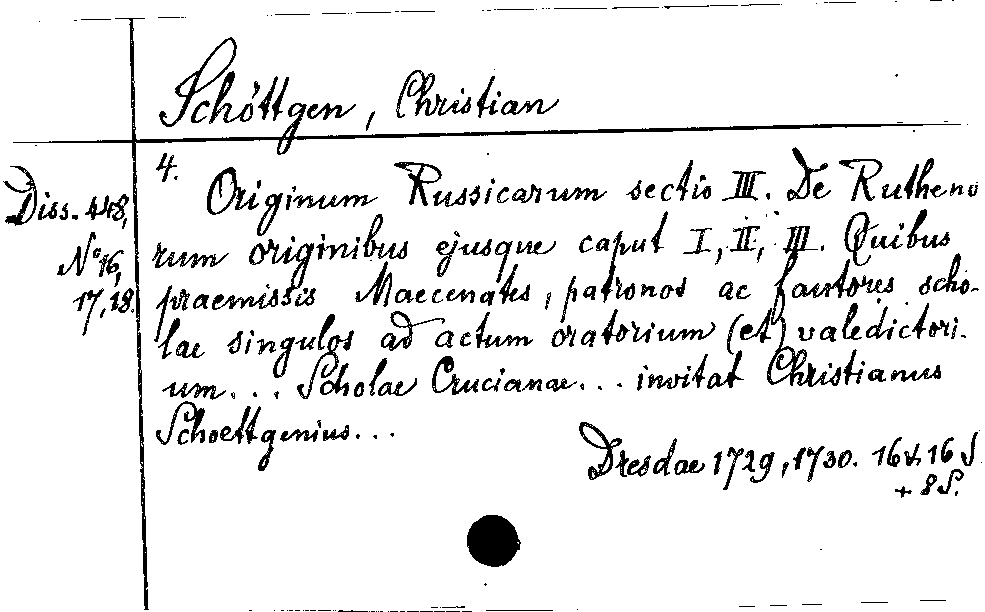 Schöttgen, Christian
4.
Diss. 448,
No 16,
17, 18.
Originum Russicarum sectio III. De Rutheno
rum originibus ejusque caput I, II, III. Quibus
praemissis Maecenates, patronos ac fautores scho-
lae singulos ad actum oratorium (et) valedictori-
um... Scholae Crucianae... invitat Christianus
Schoettgenius...
Dresdae 1729, 1730. 16 16 S.
+ 8 S.